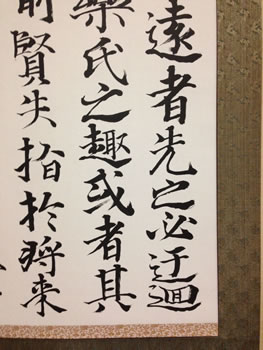 遠者先之必迂迴
樂氏之趣或者其
前賢失指於將来